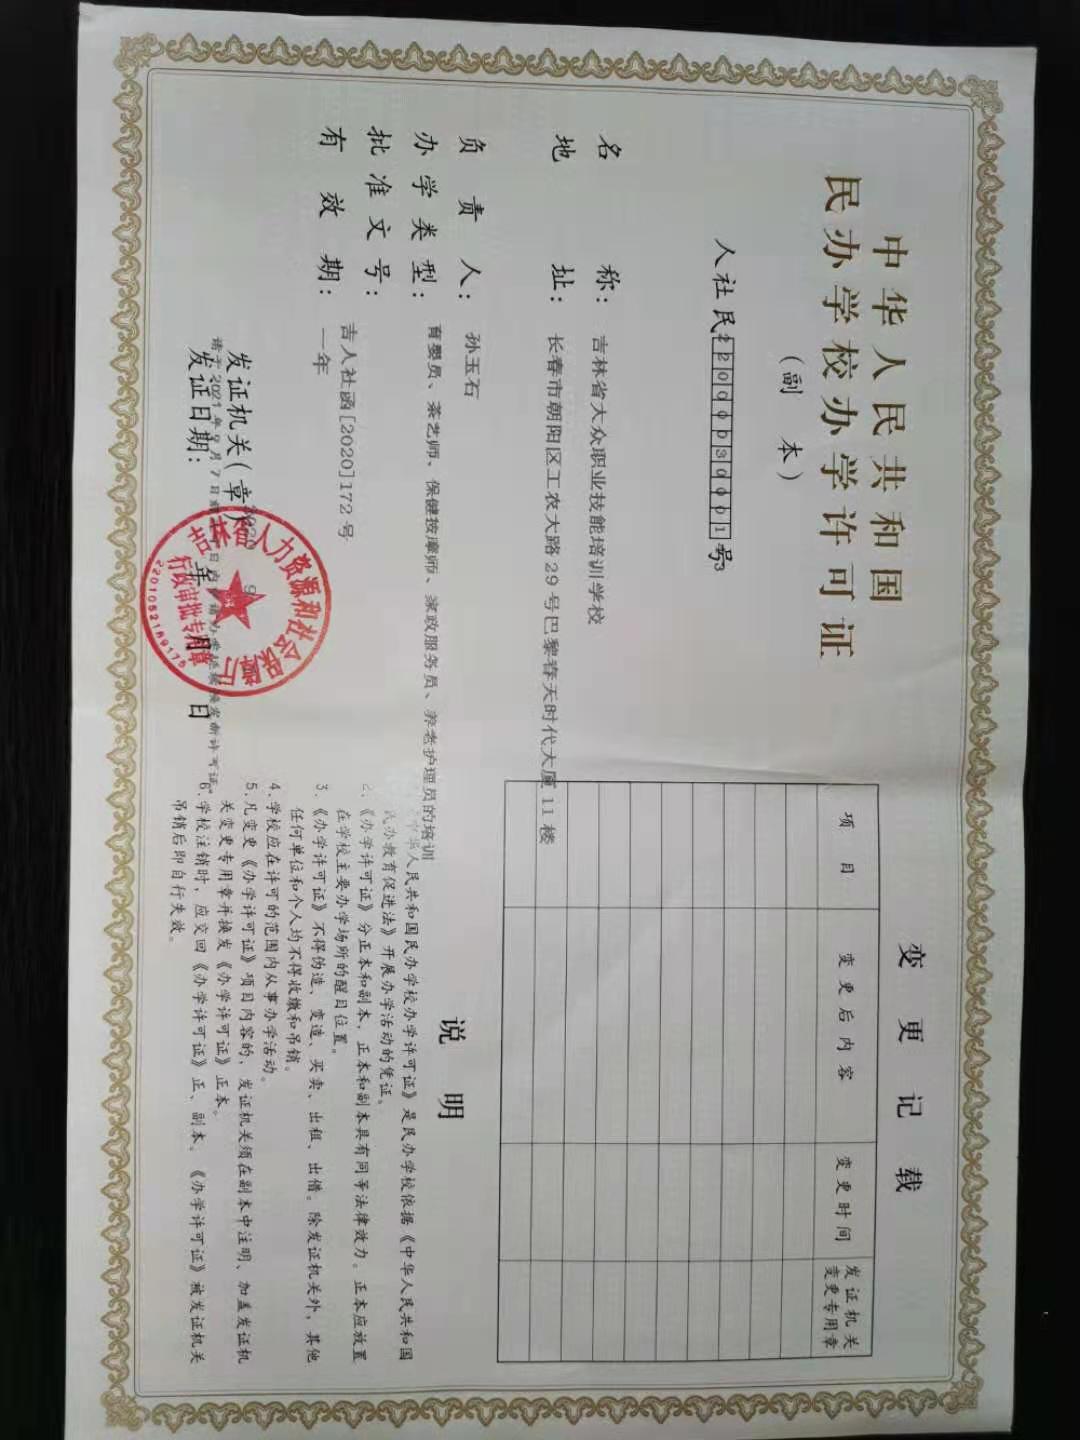 中华人民共和国
民办学校办学许可证
（副 本）
人社民 号
名 称： 吉林省大众职业技能培训学校
地 址： 长春市朝阳区工农大路29号巴黎春天时代大厦11楼
负 责 人： 孙玉石
办学类型： 育婴员、茶艺师、保健按摩师、家政服务员、养老护理员的培训
批准文号： 吉人社函[2020]172号
有 效 期： 一年
发证机关（章）
发证日期： 年 月 日
请于2021年9月7日前 日内 换发新许可证
吉林省人力资源和社会保障厅
行政审批专用章
2201052189175
变 更 记 载
项 目 变更后内容 变更时间 发证机关变更专用章
说 明
华人民共和国民办学校办学许可证》是民办学校依据《中华人民共和国
民办教育促进法》开展办学活动的凭证。
2.《办学许可证》分正本和副本，正本和副本具有同等法律效力。正本应放置
在学校主要办学场所的醒目位置。
3.《办学许可证》不得伪造、变造、买卖、出租、出借。除发证机关外，其他
任何单位和个人均不得收缴和吊销。
4.学校应在许可的范围内从事办学活动。
5.凡变更《办学许可证》项目内容的，发证机关须在副本中注明、加盖发证机
关变更专用章并换发《办学许可证》正本。
6.学校注销时，应交回《办学许可证》正、副本。《办学许可证》被发证机关
吊销后即自行失效。